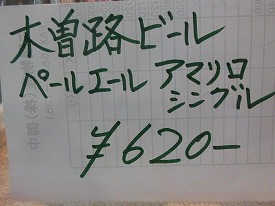 木曽路ビール
ペールエール アマリロ
シングル
¥620-